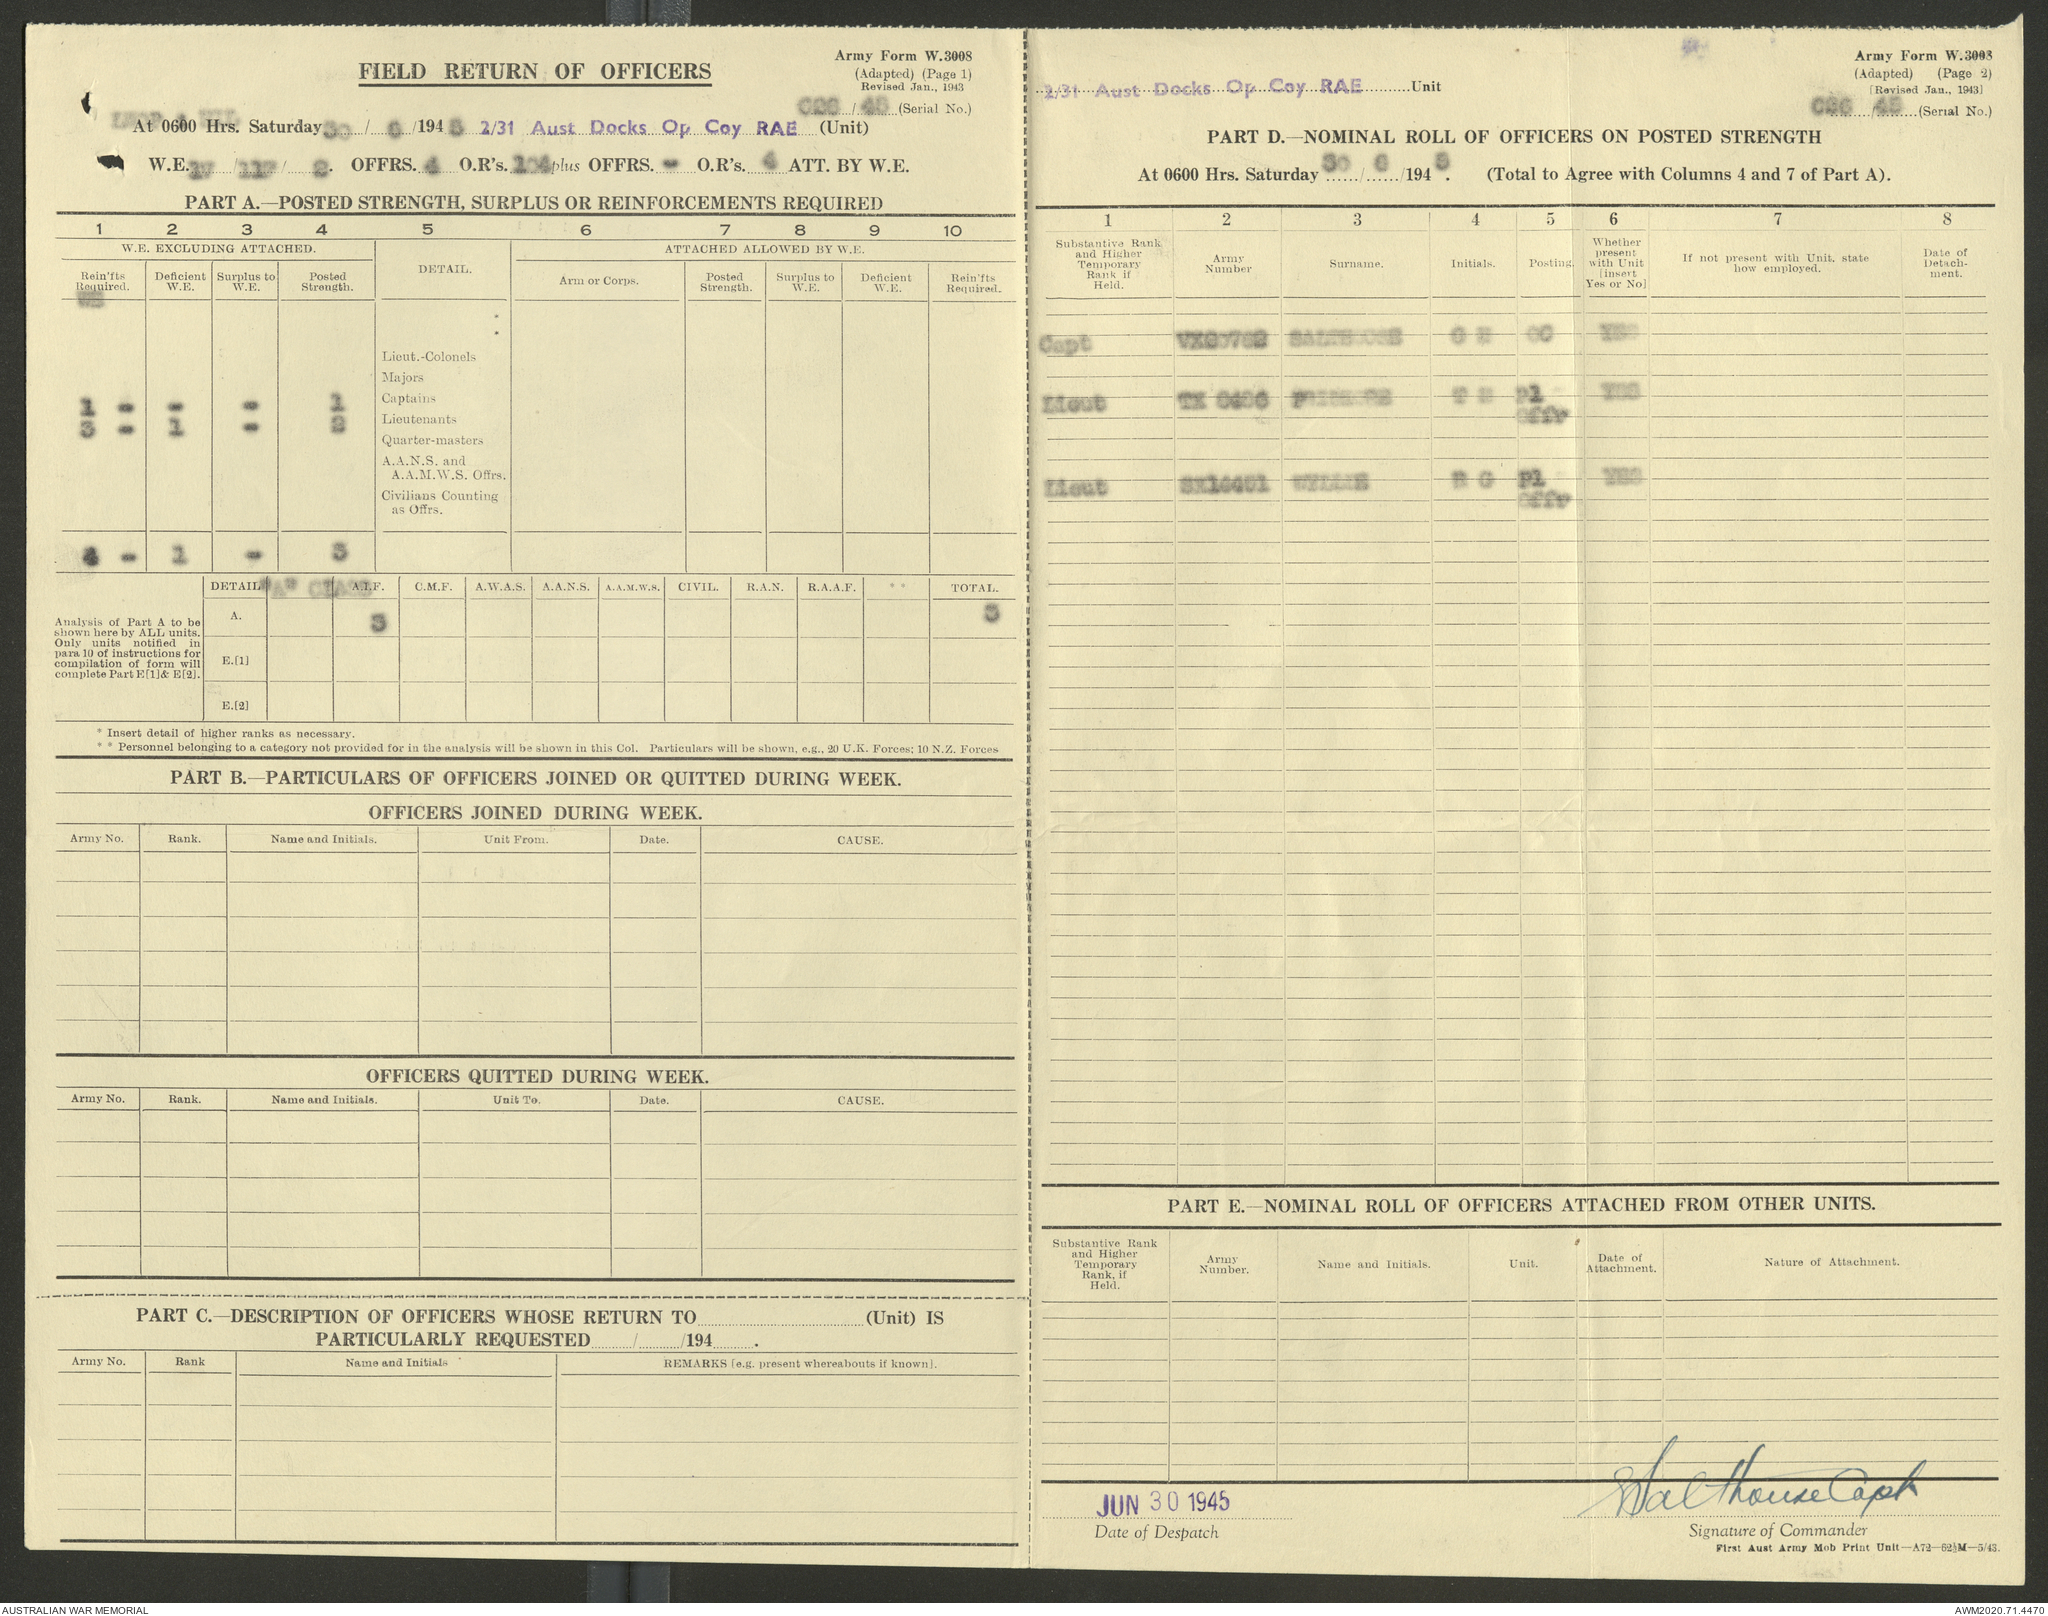 Army Form W.3008
(Adapted) (Page 1)
Revised Jan., 1943
FIELD RETURN OF OFFICERS
/ 45 (Serial No.)
At 0600 Hrs. Saturday 30 / 6 /1945 2/31 Aust Docks Op Coy RAE (Unit)
W.E. / / . OFFRS. 4 O.R's. 104 plus OFFRS. - O.R's. 4 ATT. BY W.E.
PART A.—POSTED STRENGTH, SURPLUS OR REINFORCEMENTS REQUIRED
1 2 3 4 5 6 7 8 9 10
W.E. EXCLUDING ATTACHED. DETAIL. ATTACHED ALLOWED BY W.E.
Rein'fts Required. Deficient W.E. Surplus to W.E. Posted Strength. Arm or Corps. Posted Strength. Surplus to W.E. Deficient W.E. Rein'fts Required.
WE
*
*
Lieut.-Colonels
Majors
1 - - - 1 Captains
3 - 1 - 2 Lieutenants
Quarter-masters
A.A.N.S. and
A.A.M.W.S. Offrs.
Civilians Counting
as Offrs.
4 - 1 - 3
DETAIL "A" CLASS A.I.F. C.M.F. A.W.A.S. A.A.N.S. A.A.M.W.S. CIVIL. R.A.N. R.A.A.F. * * TOTAL.
Analysis of Part A to be
shown here by ALL units.
Only units notified in
para 10 of instructions for
compilation of form will
complete Part E[1]& E[2].
A. 3 3
E.[1]
E.[2]
* Insert detail of higher ranks as necessary.
* * Personnel belonging to a category not provided for in the analysis will be shown in this Col. Particulars will be shown, e.g., 20 U.K. Forces; 10 N.Z. Forces
PART B.—PARTICULARS OF OFFICERS JOINED OR QUITTED DURING WEEK.
OFFICERS JOINED DURING WEEK.
Army No. Rank. Name and Initials. Unit From. Date. CAUSE.
OFFICERS QUITTED DURING WEEK.
Army No. Rank. Name and Initials. Unit To. Date. CAUSE.
PART C.—DESCRIPTION OF OFFICERS WHOSE RETURN TO (Unit) IS
PARTICULARLY REQUESTED / /194 .
Army No. Rank Name and Initials REMARKS [e.g. present whereabouts if known].
Army Form W.3008
(Adapted) (Page 2)
[Revised Jan., 1943]
2/31 Aust Docks Op Coy RAE Unit
/ 45 (Serial No.)
PART D.—NOMINAL ROLL OF OFFICERS ON POSTED STRENGTH
At 0600 Hrs. Saturday 30 / 6 /1945. (Total to Agree with Columns 4 and 7 of Part A).
1 2 3 4 5 6 7 8
Substantive Rank and Higher Temporary Rank if Held. Army Number Surname. Initials. Posting. Whether present with Unit [insert Yes or No] If not present with Unit, state how employed. Date of Detach-ment.
Capt SALTHOUSE OC YES
Lieut Pl Offr YES
Lieut WYLLIE R G Pl Offr YES
PART E.—NOMINAL ROLL OF OFFICERS ATTACHED FROM OTHER UNITS.
Substantive Rank and Higher Temporary Rank, if Held. Army Number. Name and Initials. Unit. Date of Attachment. Nature of Attachment.
Salthouse Capt
JUN 30 1945
Date of Despatch Signature of Commander
First Aust Army Mob Print Unit—A72—62½M—5/43.
AUSTRALIAN WAR MEMORIAL AWM2020.71.4470